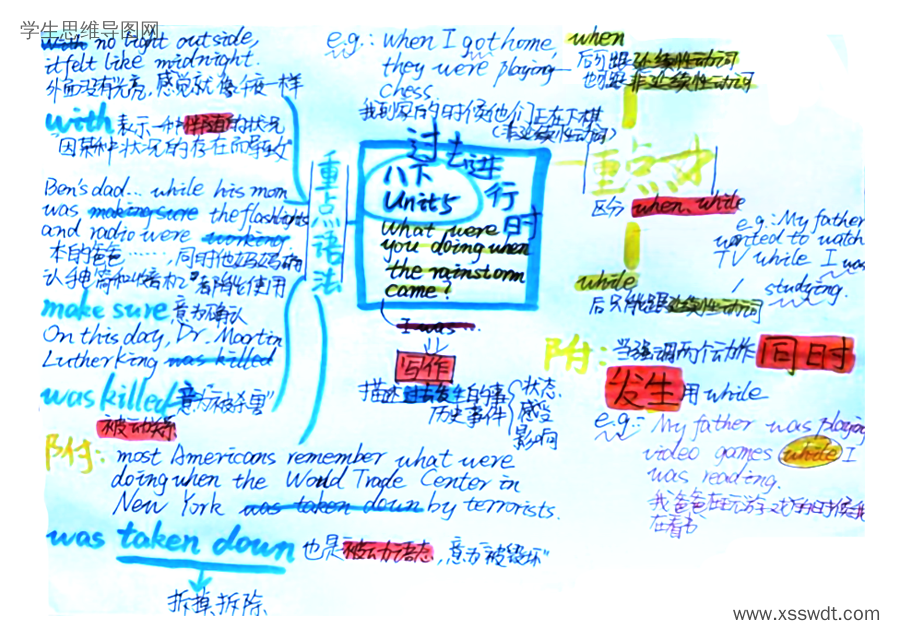 学生思维导图网
with no light outside,
it felt like midnight.
外面没有光亮，感觉就像午夜一样
with 表示一种伴随的状况
"因某种状况的存在而导致"
Ben's dad... while his mom
was making sure the flashlights
and radio were working.
本的爸爸……，同时他妈妈确
认手电筒和收音机"都能使用
make sure 意为确认
On this day, Dr. Martin
Luther King was killed
was killed 意为被杀害"
被动关系
附：most Americans remember what were
doing when the World Trade Center in
New York was taken down by terrorists.
was taken down 也是被动语态，意为"被毁坏"
拆掉、拆除
重点语法
e.g.: when I got home,
they were playing
chess.
我到家的时候他们正在下棋
(非延续性动词)
过去进行时
八下
Unit5
What were
you doing when
the rainstorm
came?
I was...
写作
描述过去发生的事
历史事件
状态
感受
影响
when
后可跟延续性动词
也可跟非延续性动词
重点
区分 when、while
e.g: My father
wanted to watch
TV while I was
studying.
while
后只能跟延续性动词
附：当强调两个动作同时
发生用while
e.g.: My father was playing
video games while I
was reading.
我爸爸在玩游戏的时候我
在看书
www.xsswdt.com